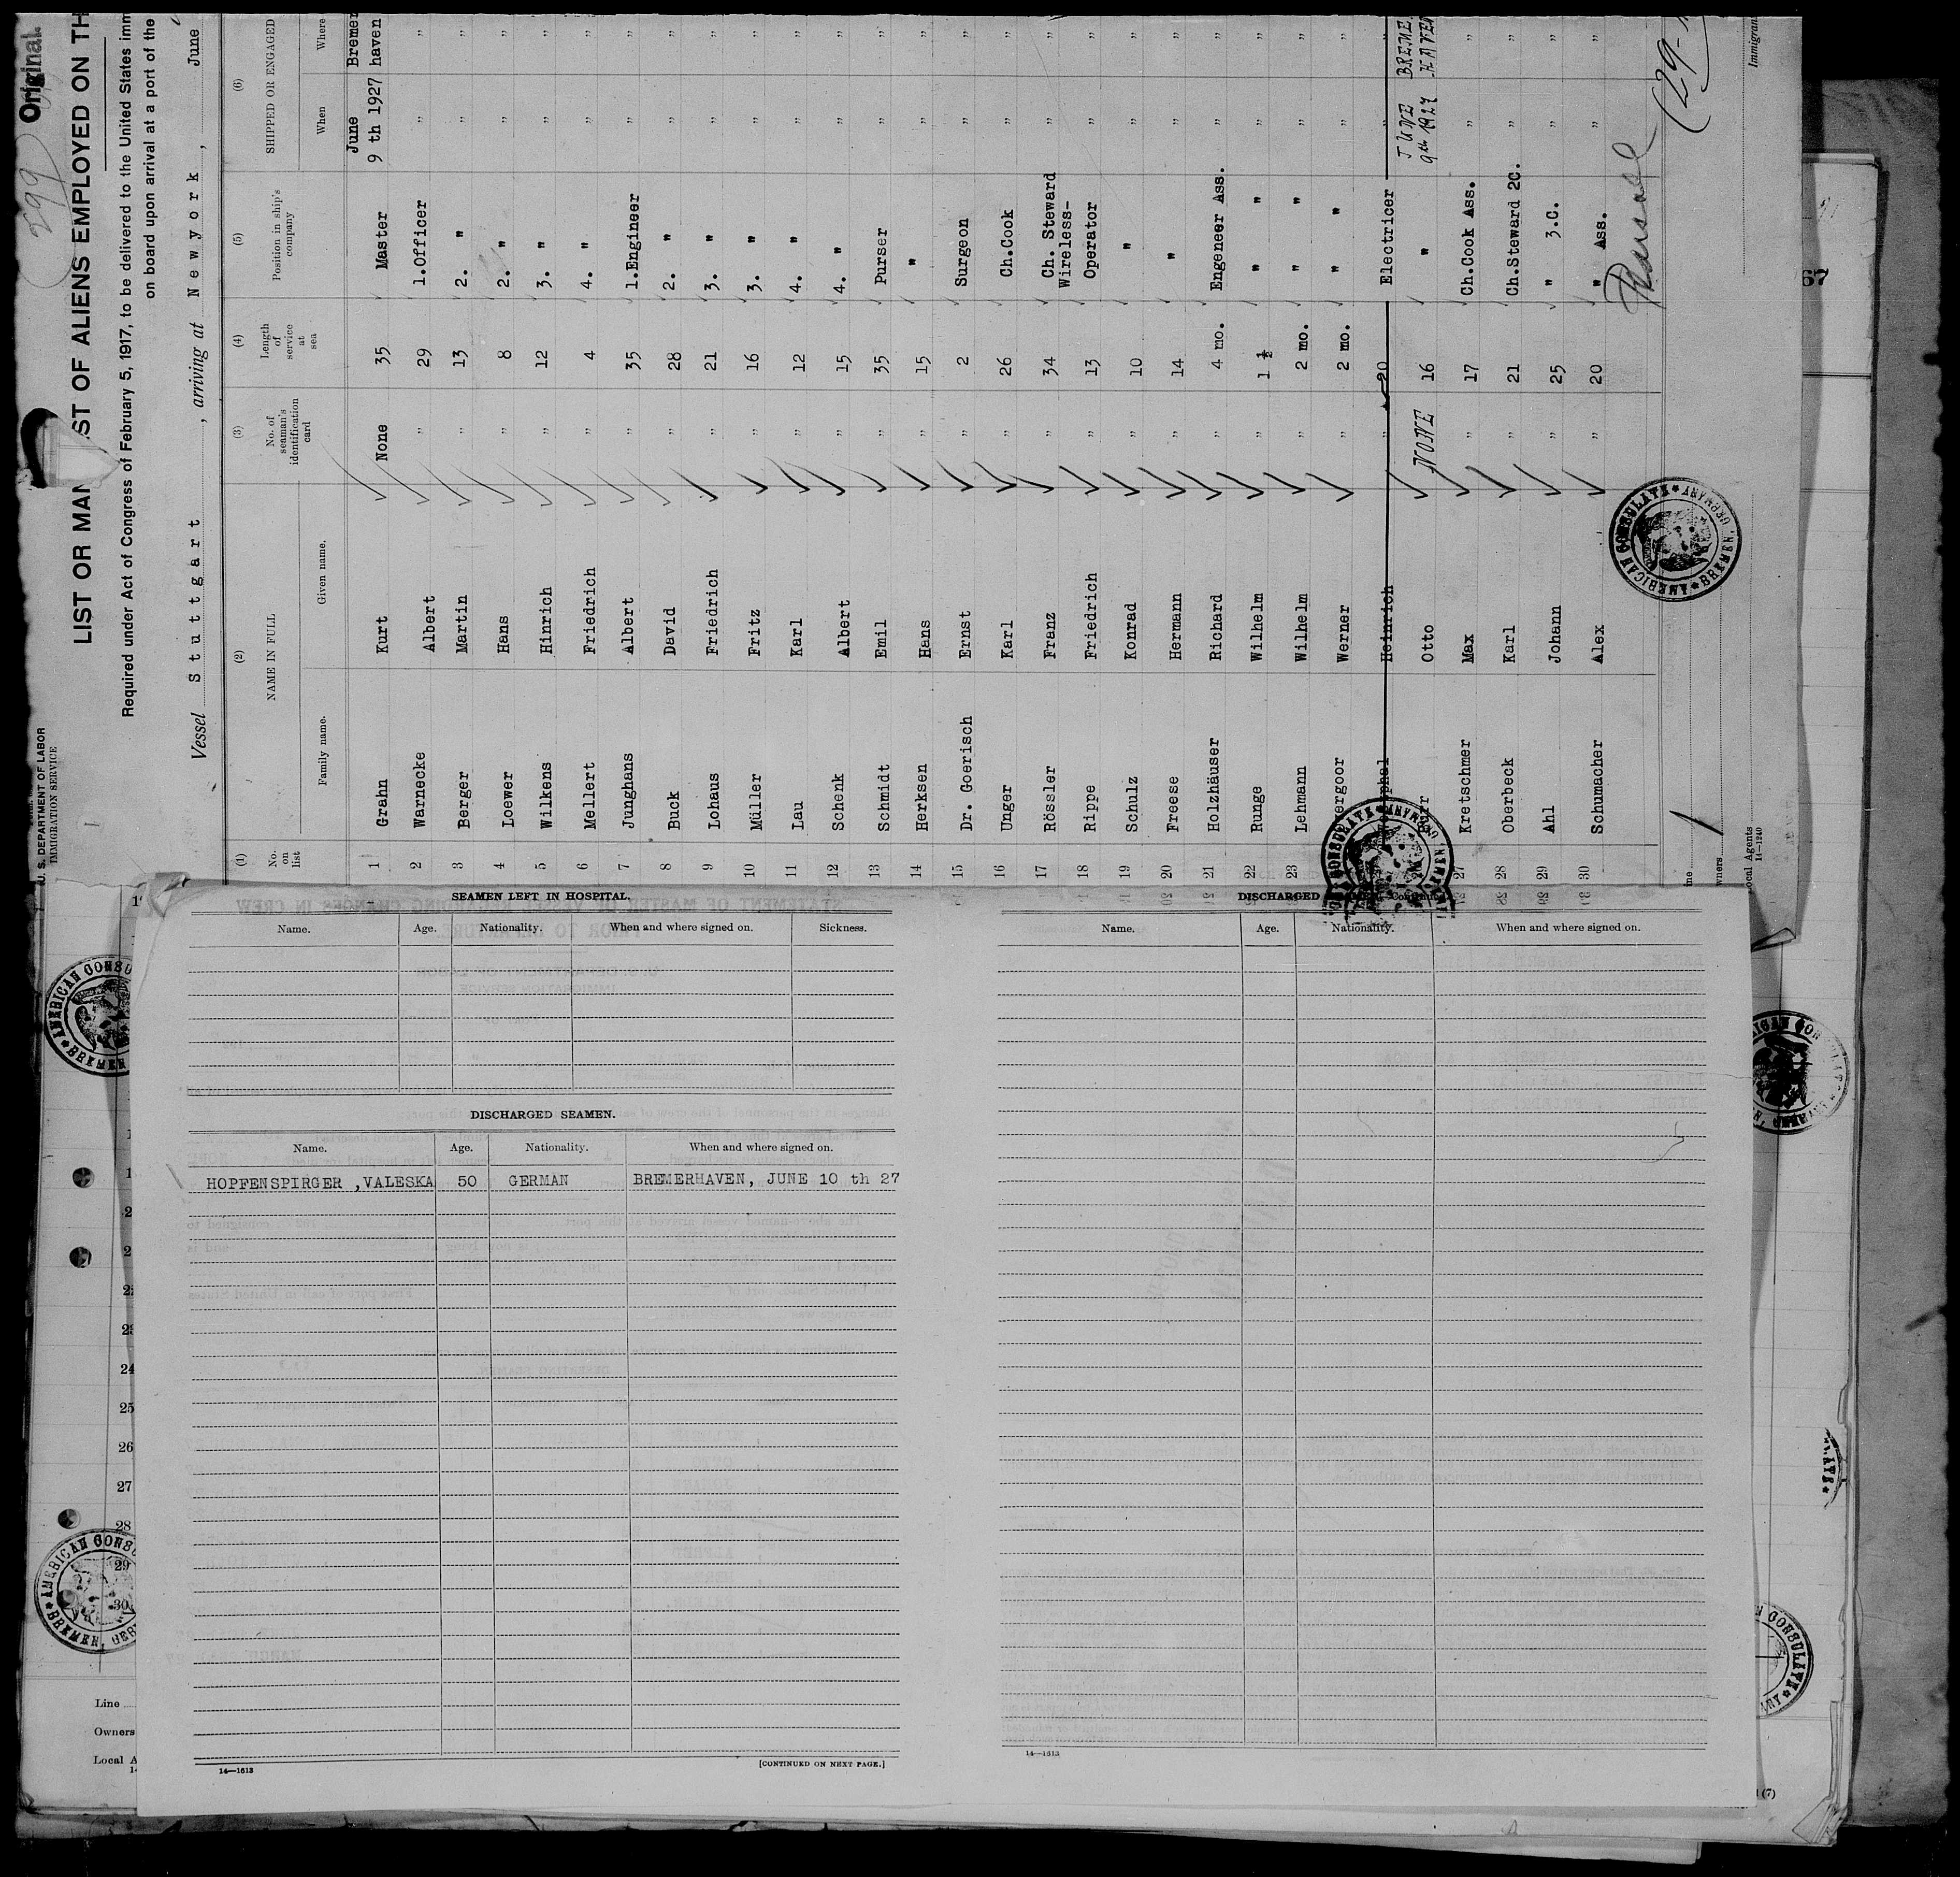 Original.
299
LIST OR MAN ST OF ALIENS EMPLOYED ON TH
Required under Act of Congress of February 5, 1917, to be delivered to the United States imm
on board upon arrival at a port of the
U. S. DEPARTMENT OF LABOR
IMMIGRATION SERVICE
Vessel Stuttgart, arriving at Newyork, June
(1) (2) (3) (4) (5) (6)
No. on list NAME IN FULL No. of seaman's identification card Length of service at sea Position in ship's company SHIPPED OR ENGAGED
Family name. Given name. When Where
1 Grahn Kurt None 35 Master June 9 th 1927 Bremer haven
2 Warnecke Albert " 29 1.Officer " "
3 Berger Martin " 13 2. " " "
4 Loewer Hans " 8 2. " " "
5 Wilkens Hinrich " 12 3. " " "
6 Mellert Friedrich " 4 4. " " "
7 Junghans Albert " 35 1.Engineer " "
8 Buck David " 28 2. " " "
9 Lohaus Friedrich " 21 3. " " "
10 Müller Fritz " 16 3. " " "
11 Lau Karl " 12 4. " " "
12 Schenk Albert " 15 4. " " "
13 Schmidt Emil " 35 Purser " "
14 Herksen Hans " 15 " " "
15 Dr. Goerisch Ernst " 2 Surgeon " "
16 Unger Karl " 26 Ch.Cook " "
17 Rössler Franz " 34 Ch. Steward " "
18 Rippe Friedrich " 13 Wireless-Operator " "
19 Schulz Konrad " 10 " " "
20 Freese Hermann " 14 " " "
21 Holzhäuser Richard " 4 mo. Engeneer Ass. " "
22 Runge Wilhelm " 1 ½ " " " "
23 Lehmann Wilhelm " 2 mo. " " " "
ergoor Werner " 2 mo. " " " "
phal Heinrich " 20 Electricer " "
Otto NONE 16 " JUNE 9th 1927 BREME. HAVEN
27 Kretschmer Max " 17 Ch.Cook Ass. " "
28 Oberbeck Karl " 21 Ch.Steward 2C. " "
29 Ahl Johann " 25 " 3.C. " "
30 Schumacher Alex " 20 " Ass. " "
(29-
Immigran
ne
wners
ocal Agents
14—1240
AMERICAN CONSULATE
BREMEN, GERMANY
SEAMEN LEFT IN HOSPITAL.
Name. Age. Nationality. When and where signed on. Sickness.
DISCHARGED SEAMEN.
Name. Age. Nationality. When and where signed on.
HOPFENSPIRGER ,VALESKA 50 GERMAN BREMERHAVEN, JUNE 10 th 27
14—1613
[CONTINUED ON NEXT PAGE.]
DISCHARGED
Name. Age. Nationality. When and where signed on.
14—1613
AMERICAN CONSU
BREMEN
24
25
26
27
28
29
30
AMERICAN CONSU
BREMEN, GER
Line
Owners
Local A